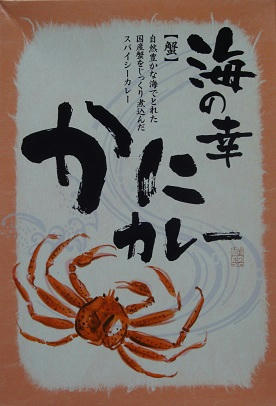 海の幸
【蟹】
自然豊かな海でとれた
国産蟹をじっくり煮込んだ
スパイシーカレー
かに
カレー